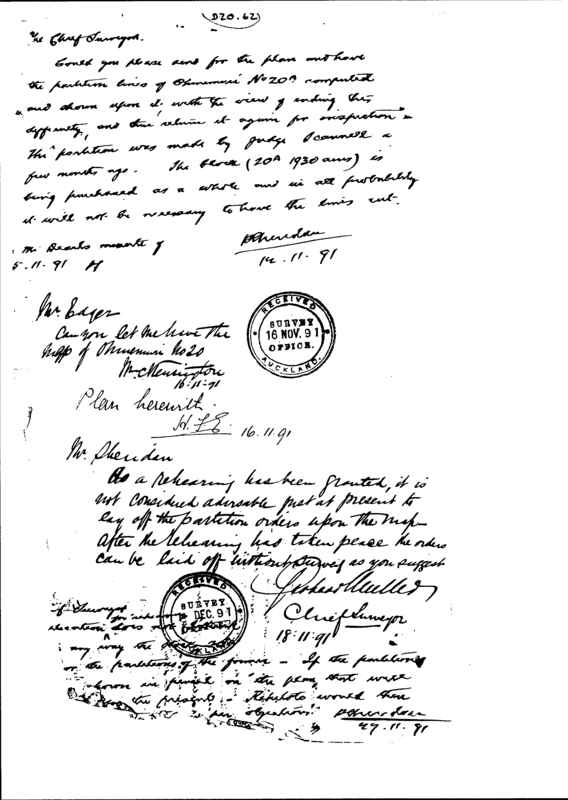 D20.62
The Chief Surveyor.
Could you please send for the plan and have
the partition lines of Ohinemuri No 20A computed
and shown upon it with the view of ending this
difficulty, and then return it again for inspection
This partition was made by Judge Scannell a
few months ago. The block (20A 1930 acres) is
being purchased as a whole and in all probability
it will not be necessary to have the lines cut.
P Sheridan
14.11.91
minute of
5.11.91
Mr. Edger
Can you let me have the
map of Ohinemuri No 20
16.11.91
RECEIVED
SURVEY
16 NOV. 91
OFFICE.
AUCKLAND.
Plan herewith.
16.11.91
Mr. Sheridan
As a rehearing has been granted, it is
not considered advisable just at present to
lay off the partition orders upon the map
After the rehearing has taken place the orders
can be laid off without survey as you suggest
Gerhard Mueller
Chief Surveyor
18.11.91
RECEIVED
SURVEY
DEC. 91
AUCKLAND
Surveyor
does not
any way the
on the partitions of the former - If the partitions
shown in pencil on the plan that will
the present - would then
objections P Sheridan
27.11.91